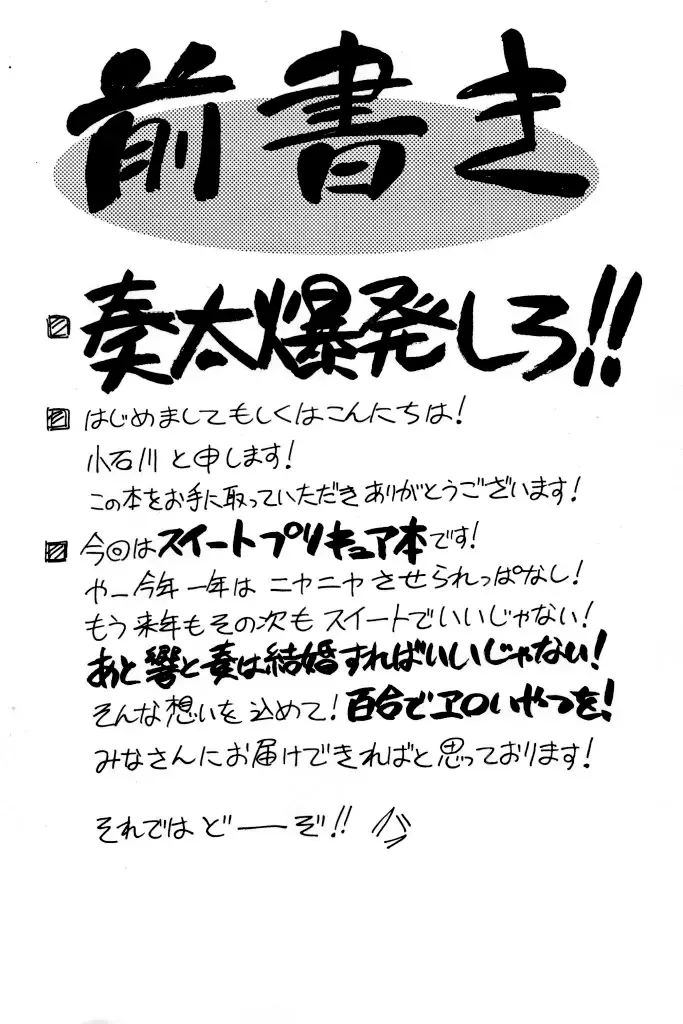 前書き
奏太爆発しろ!!
はじめましてもしくはこんにちは!
小石川と申します!
この本をお手に取っていただきありがとうございます!
今回はスイートプリキュア本です!
やー今年一年はニヤニヤさせられっぱなし!
もう来年もその次もスイートでいいじゃない!
あと響と奏は結婚すればいいじゃない!
そんな想いを込めて!百合でヱロいやつを!
みなさんにお届けできればと思っております!
それではどーーぞ!!